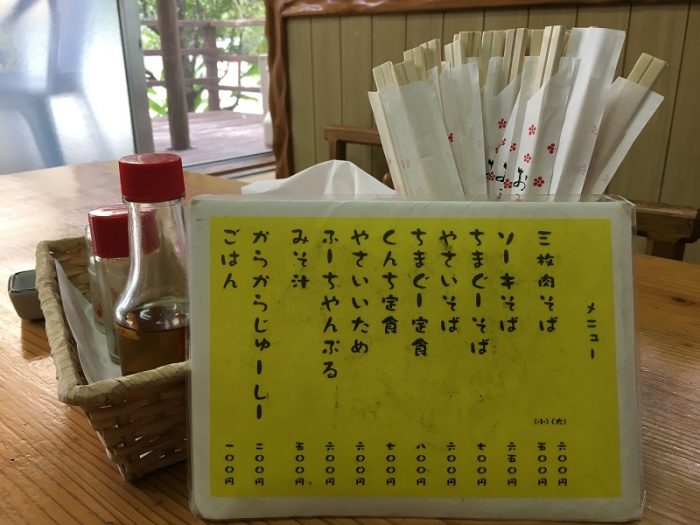 メニュー
三枚肉そば (小)(大) 五〇〇円 六〇〇円
ソーキそば 六五〇円
ちまぐーそば 七〇〇円
やさいそば 六〇〇円
ちまぐー定食 八〇〇円
くんち定食 七〇〇円
やさいいため 六〇〇円
ふーちゃんぷる 六〇〇円
みそ汁 五〇〇円
からからじゅーしー 二〇〇円
ごはん 一〇〇円